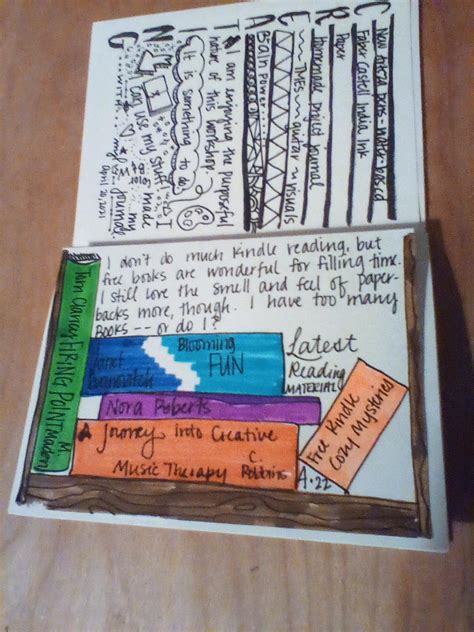 C
New Arteza pens - water-based
Faber Castell India Ink
R
Paper
E
Homemade project journal
TIMES guitar visuals
A
Brain Power
T
I am enjoying the purposeful
nature of this workshop.
I
It is something to do.
N
I can use my stuff
G
WITH
I made
my
journal
April 20, 2021
I don't do much Kindle reading, but
free books are wonderful for filling time.
I still love the smell and feel of paper-
backs more, though. I have too many
books -- or do I?
Tom Clancy FIRING POINT M. Maden
Janet Evanovich
Blooming
FUN
Latest
Reading
MATERIAL
Nora Roberts
A Journey Into Creative
Music Therapy
C. Robbins
Free Kindle
Cozy Mysteries
A.22